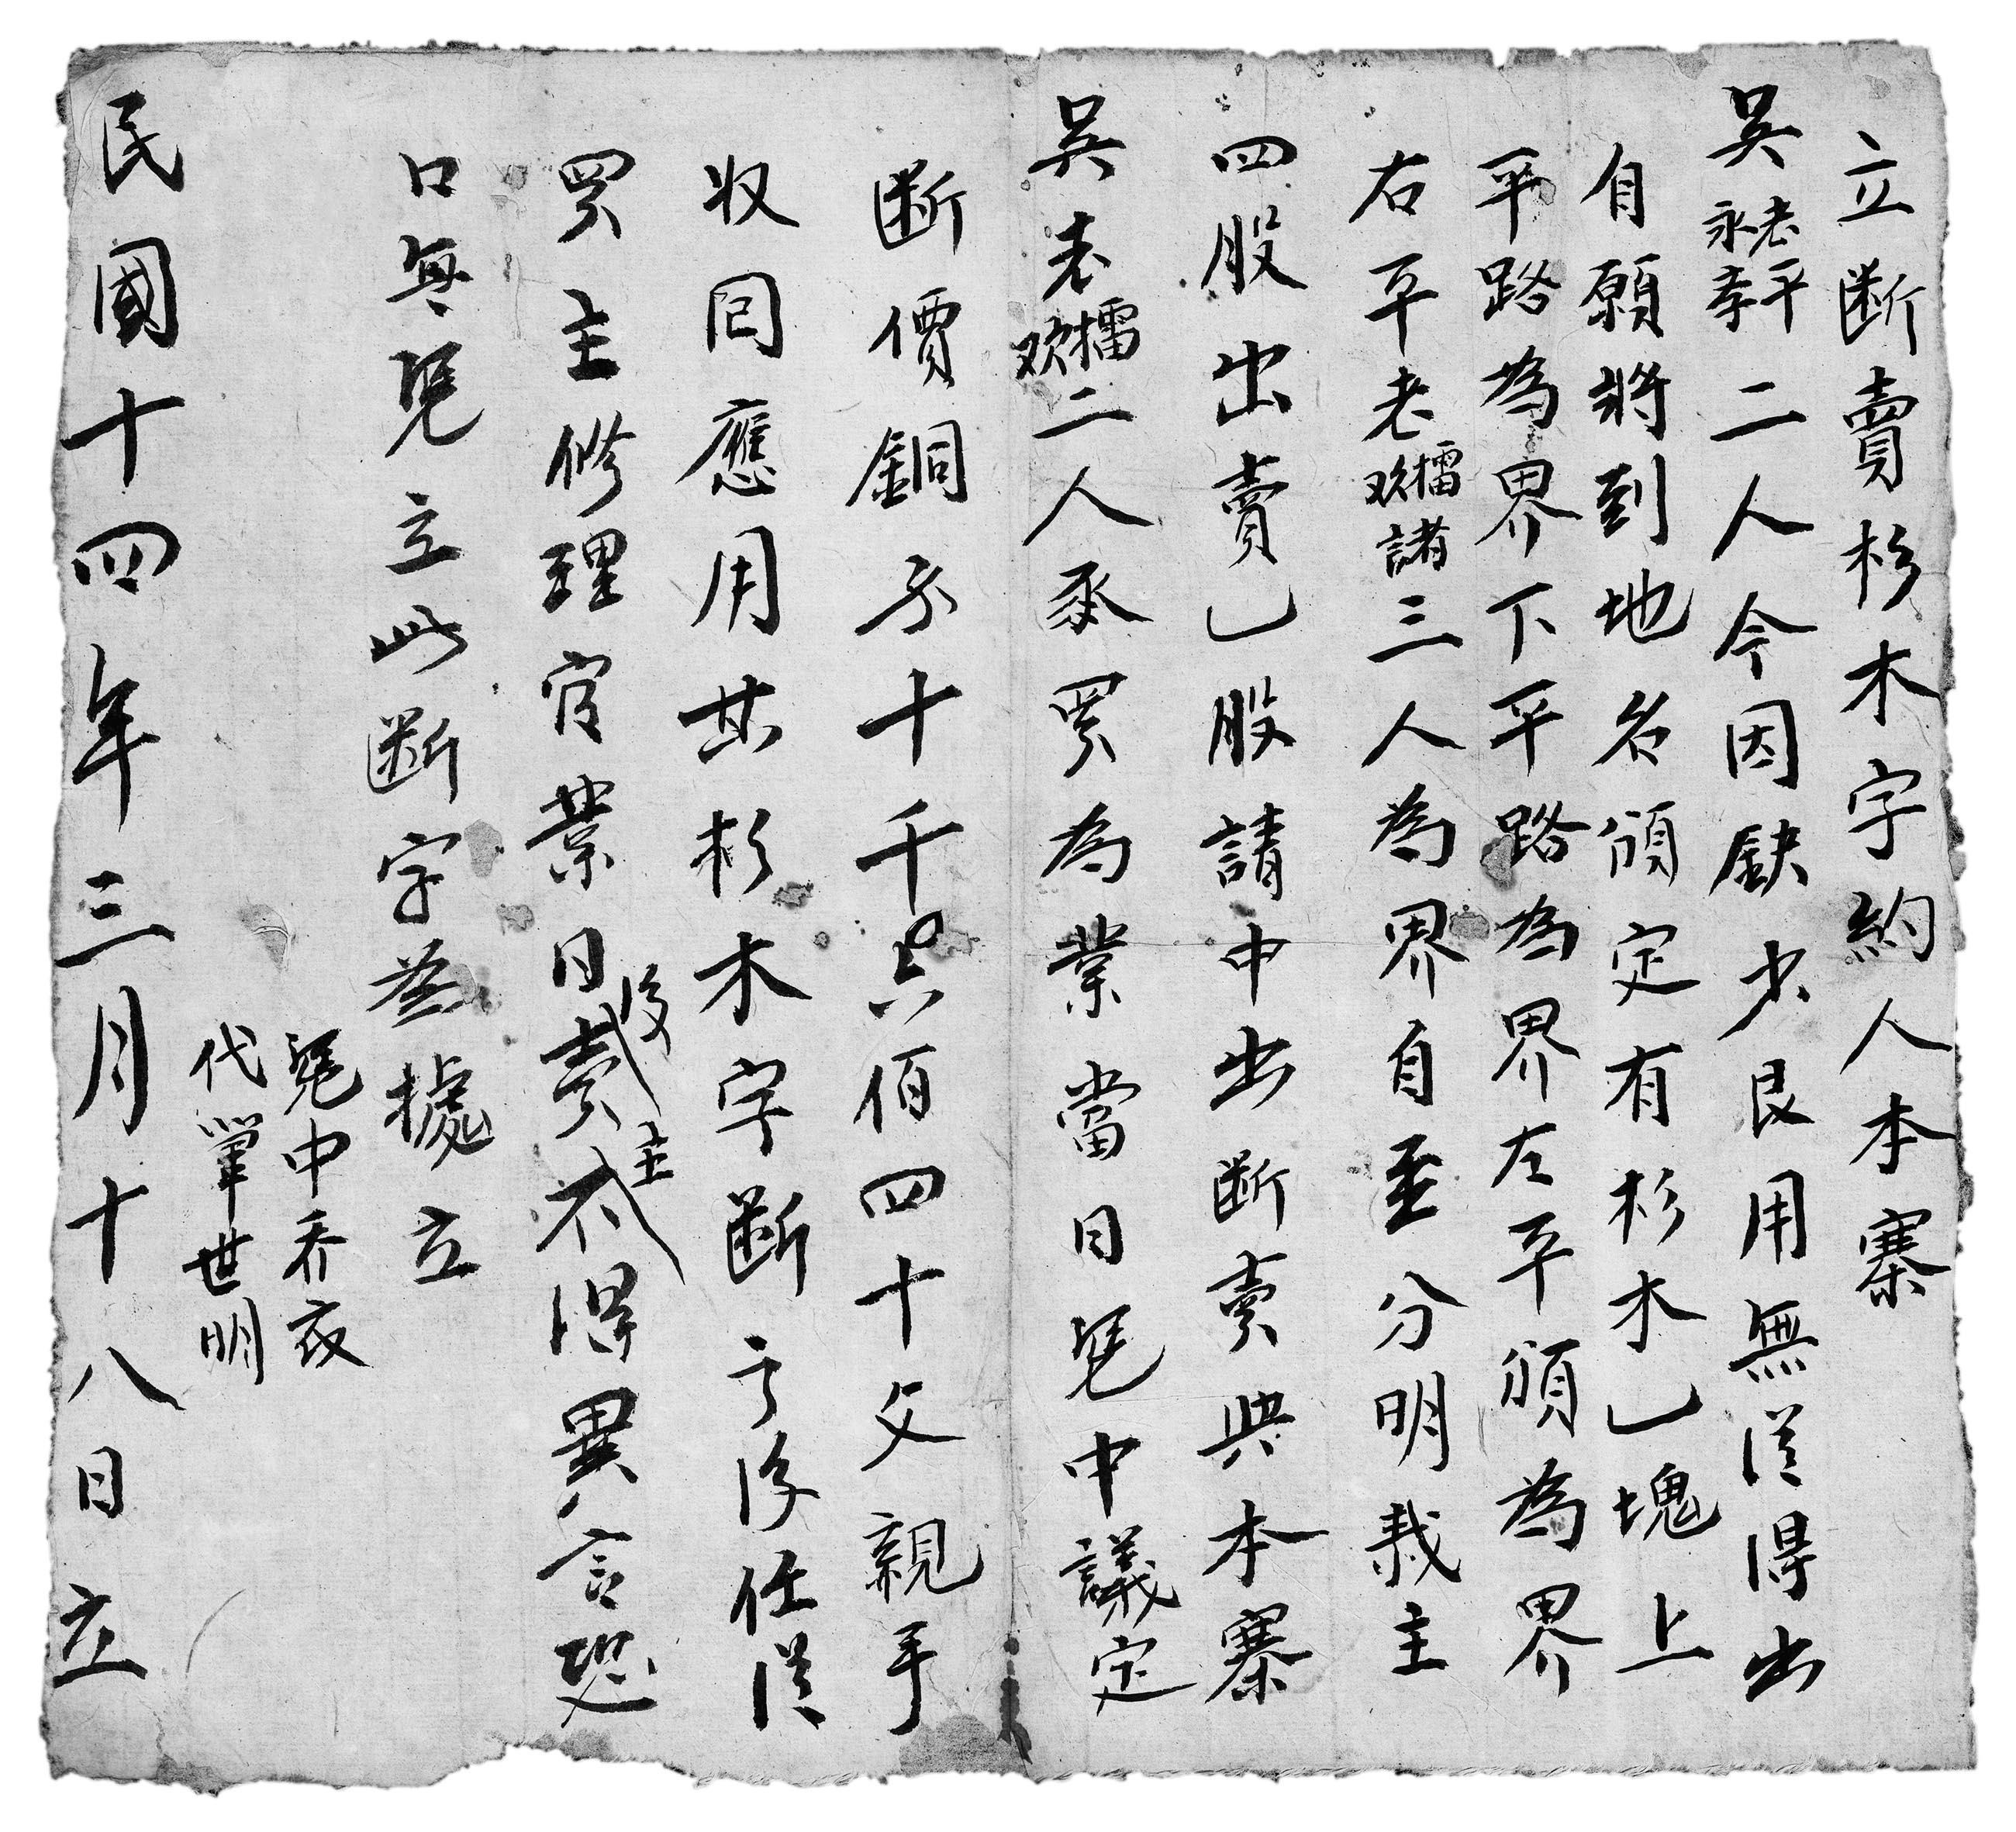 立断賣杉木字約人本寨
吳老平永李二人今因缺少艮用無從得出
自願將到地名頒定有杉木乚塊上
平路為界下平路為界左平頒為界
右平老擂欢諸三人為界自至分明栽主
四股出賣乚股請中出断賣與本寨
吳老擂欢二人承買為業當日凴中議定
断價銅示十千零六佰四十文親手
收囘應用其杉木字断之後任從
買主修理官業日後賣主不得異言恐
口無凴立此断字為據立
凴中乔衣
代筆世明
民國十四年三月十八日立